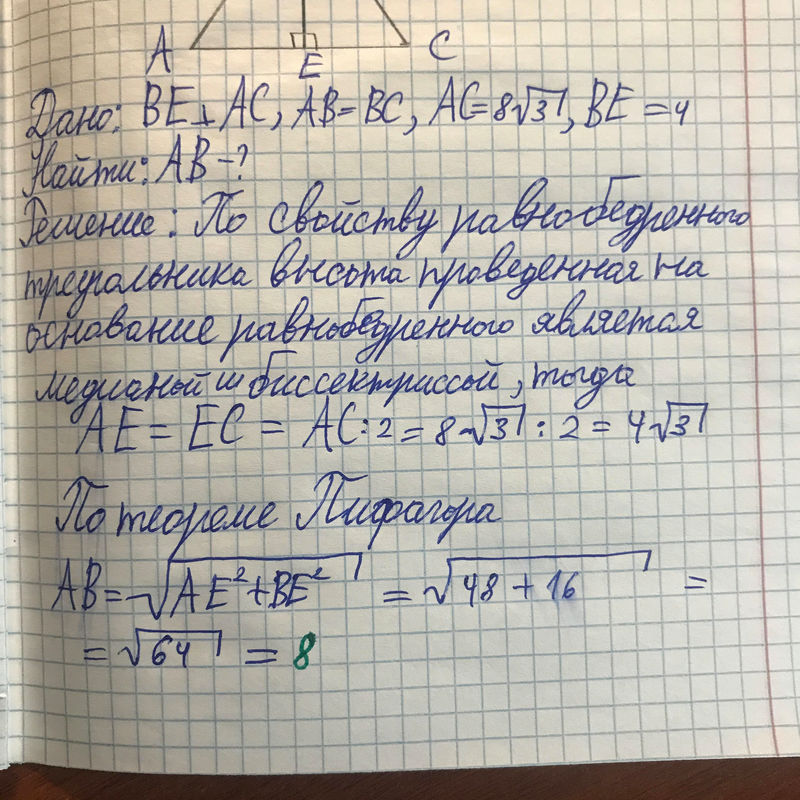 A E C
Дано: BE⊥AC, AB=BC, AC=8√3, BE=4
Найти: AB-?
Решение: По свойству равнобедренного
треугольника высота проведенная на
основание равнобедренного является
медианой и биссектриссой, тогда
AE = EC = AC:2 = 8√3 : 2 = 4√3
По теореме Пифагора
AB = √AE²+BE² = √48 + 16 =
= √64 = 8